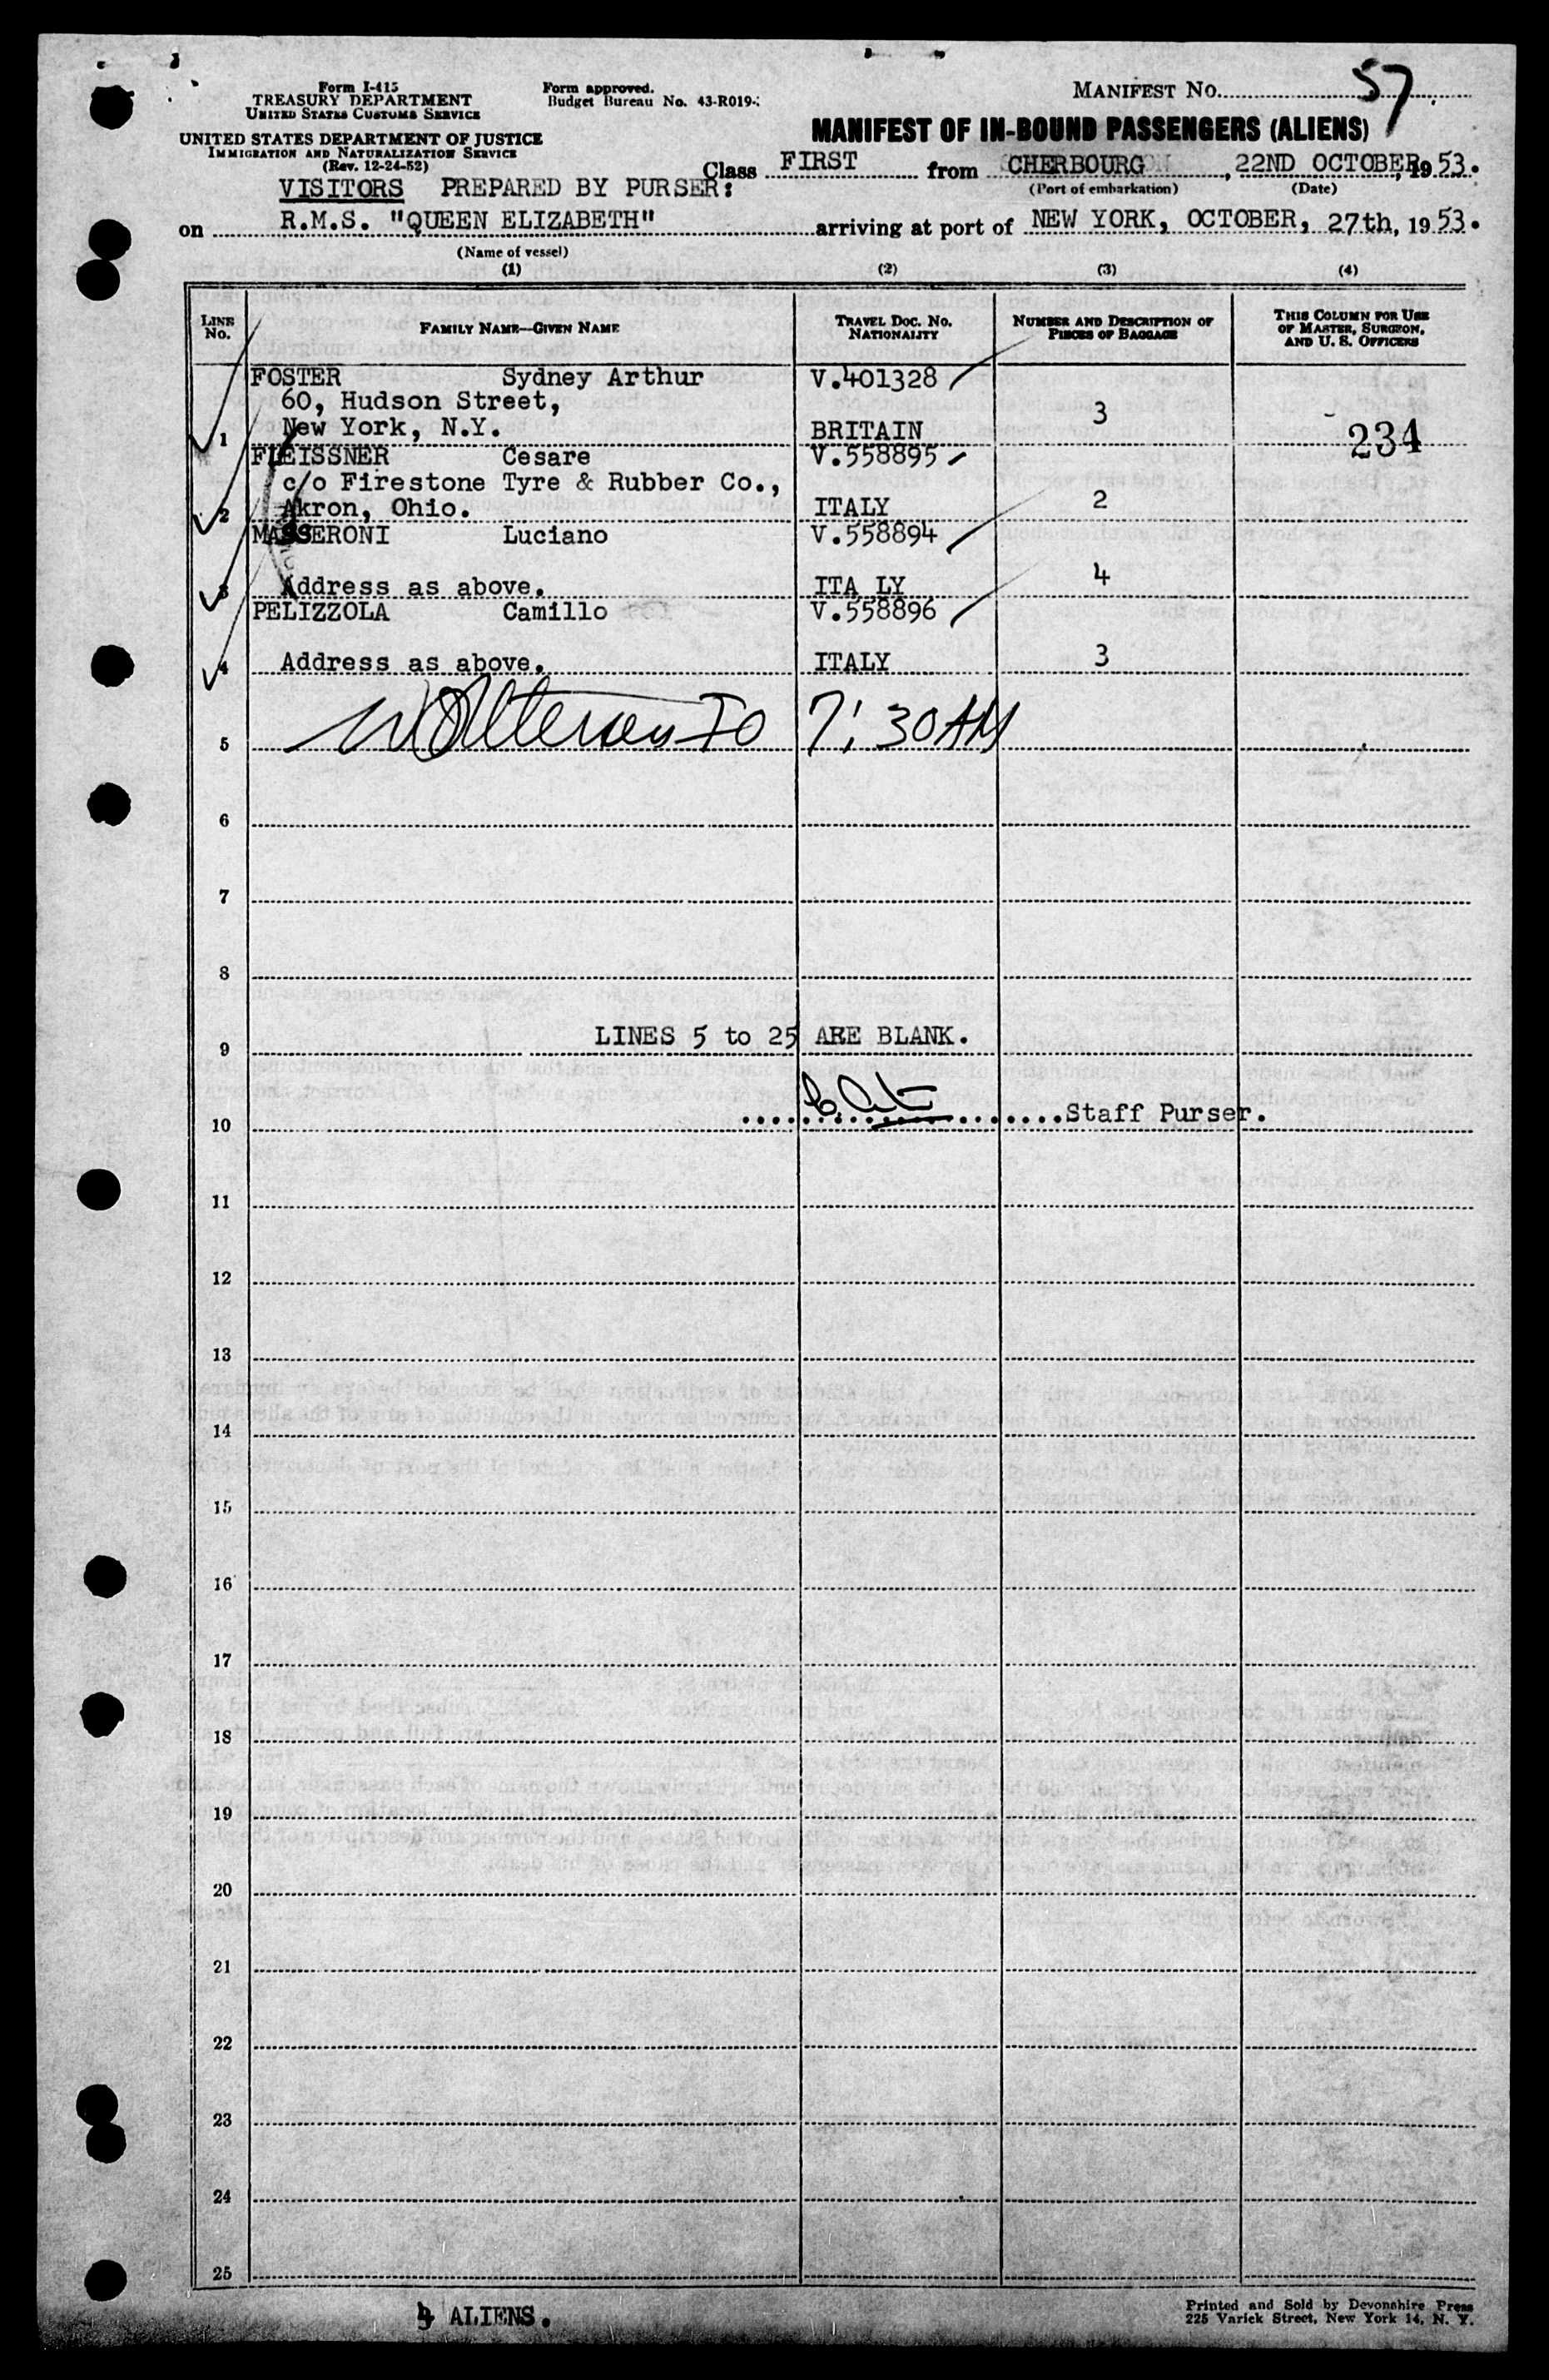 Form I-415
TREASURY DEPARTMENT
UNITED STATES CUSTOMS SERVICE
UNITED STATES DEPARTMENT OF JUSTICE
IMMIGRATION AND NATURALIZATION SERVICE
(Rev. 12-24-52)
Form approved.
Budget Bureau No. 43-R019-
MANIFEST No. 57
MANIFEST OF IN-BOUND PASSENGERS (ALIENS)
Class FIRST from CHERBOURG, 22ND OCTOBER, 1953.
(Port of embarkation) (Date)
VISITORS PREPARED BY PURSER:
on R.M.S. "QUEEN ELIZABETH" arriving at port of NEW YORK, OCTOBER, 27th, 1953.
(Name of vessel)
(1) (2) (3) (4)
LINE No. FAMILY NAME—GIVEN NAME TRAVEL DOC. NO. NATIONALITY NUMBER AND DESCRIPTION OF PIECES OF BAGGAGE THIS COLUMN FOR USE OF MASTER, SURGEON, AND U. S. OFFICERS
FOSTER Sydney Arthur V.401328
60, Hudson Street, 3
1 New York, N.Y. BRITAIN 234
FLEISSNER Cesare V.558895
c/o Firestone Tyre & Rubber Co.,
2 Akron, Ohio. ITALY 2
MASSERONI Luciano V.558894
3 Address as above. ITA LY 4
PELIZZOLA Camillo V.558896
4 Address as above. ITALY 3
5 7:30 AM
6
7
8
9 LINES 5 to 25 ARE BLANK.
10 Staff Purser.
11
12
13
14
15
16
17
18
19
20
21
22
23
24
25
4 ALIENS.
Printed and Sold by Devonshire Press
225 Varick Street, New York 14, N. Y.